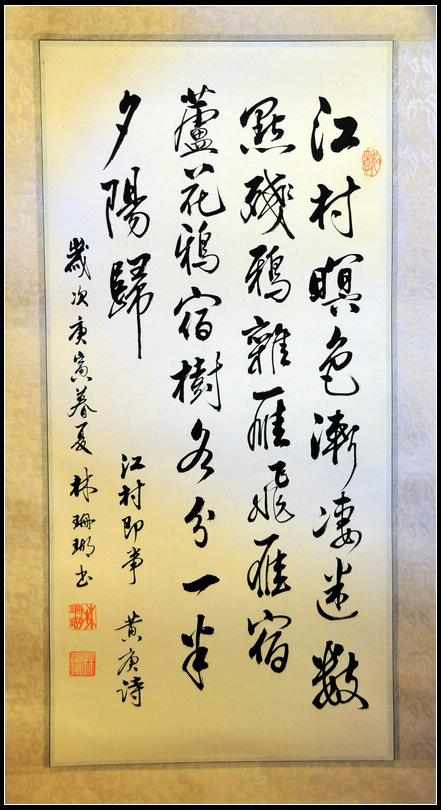 江村暝色漸凄迷數
點殘鴉雜雁飛雁宿
蘆花鴉宿樹各分一半
夕陽歸
江村即事 黃庚詩
歲次庚寅暮夏 林珊瑚書